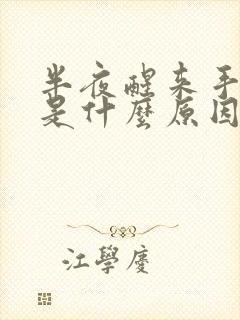 半夜醒来手
是什麼原因
江學慶